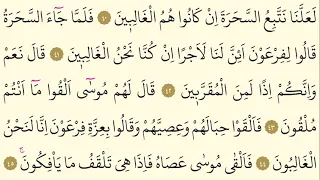 لَعَلَّنَا نَتَّبِعُ السَّحَرَةَ اِنْ كَانُوا هُمُ الْغَالِب۪ينَ ﴿٤٠﴾ فَلَمَّا جَٓاءَ السَّحَرَةُ
قَالُوا لِفِرْعَوْنَ اَئِنَّ لَنَا لَاَجْرًا اِنْ كُنَّا نَحْنُ الْغَالِب۪ينَ ﴿٤١﴾ قَالَ نَعَمْ
وَاِنَّكُمْ اِذًا لَمِنَ الْمُقَرَّب۪ينَ ﴿٤٢﴾ قَالَ لَهُمْ مُوسٰٓى اَلْقُوا مَٓا اَنْتُمْ
مُلْقُونَ ﴿٤٣﴾ فَاَلْقَوْا حِبَالَهُمْ وَعِصِيَّهُمْ وَقَالُوا بِعِزَّةِ فِرْعَوْنَ اِنَّا لَنَحْنُ
الْغَالِبُونَ ﴿٤٤﴾ فَاَلْقٰى مُوسٰى عَصَاهُ فَاِذَا هِيَ تَلْقَفُ مَا يَأْفِكُونَۚ ﴿٤٥﴾